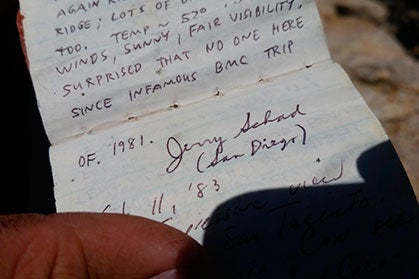 AGAIN
RIDGE; LOTS OF
TOO. TEMP ~ 570.
WINDS, SUNNY; FAIR VISIBILITY.
SURPRISED THAT NO ONE HERE
SINCE INFAMOUS BMC TRIP
OF 1981. Jerry Schad
(San Diego)
11, '83
view
San Jacinto.
Can see